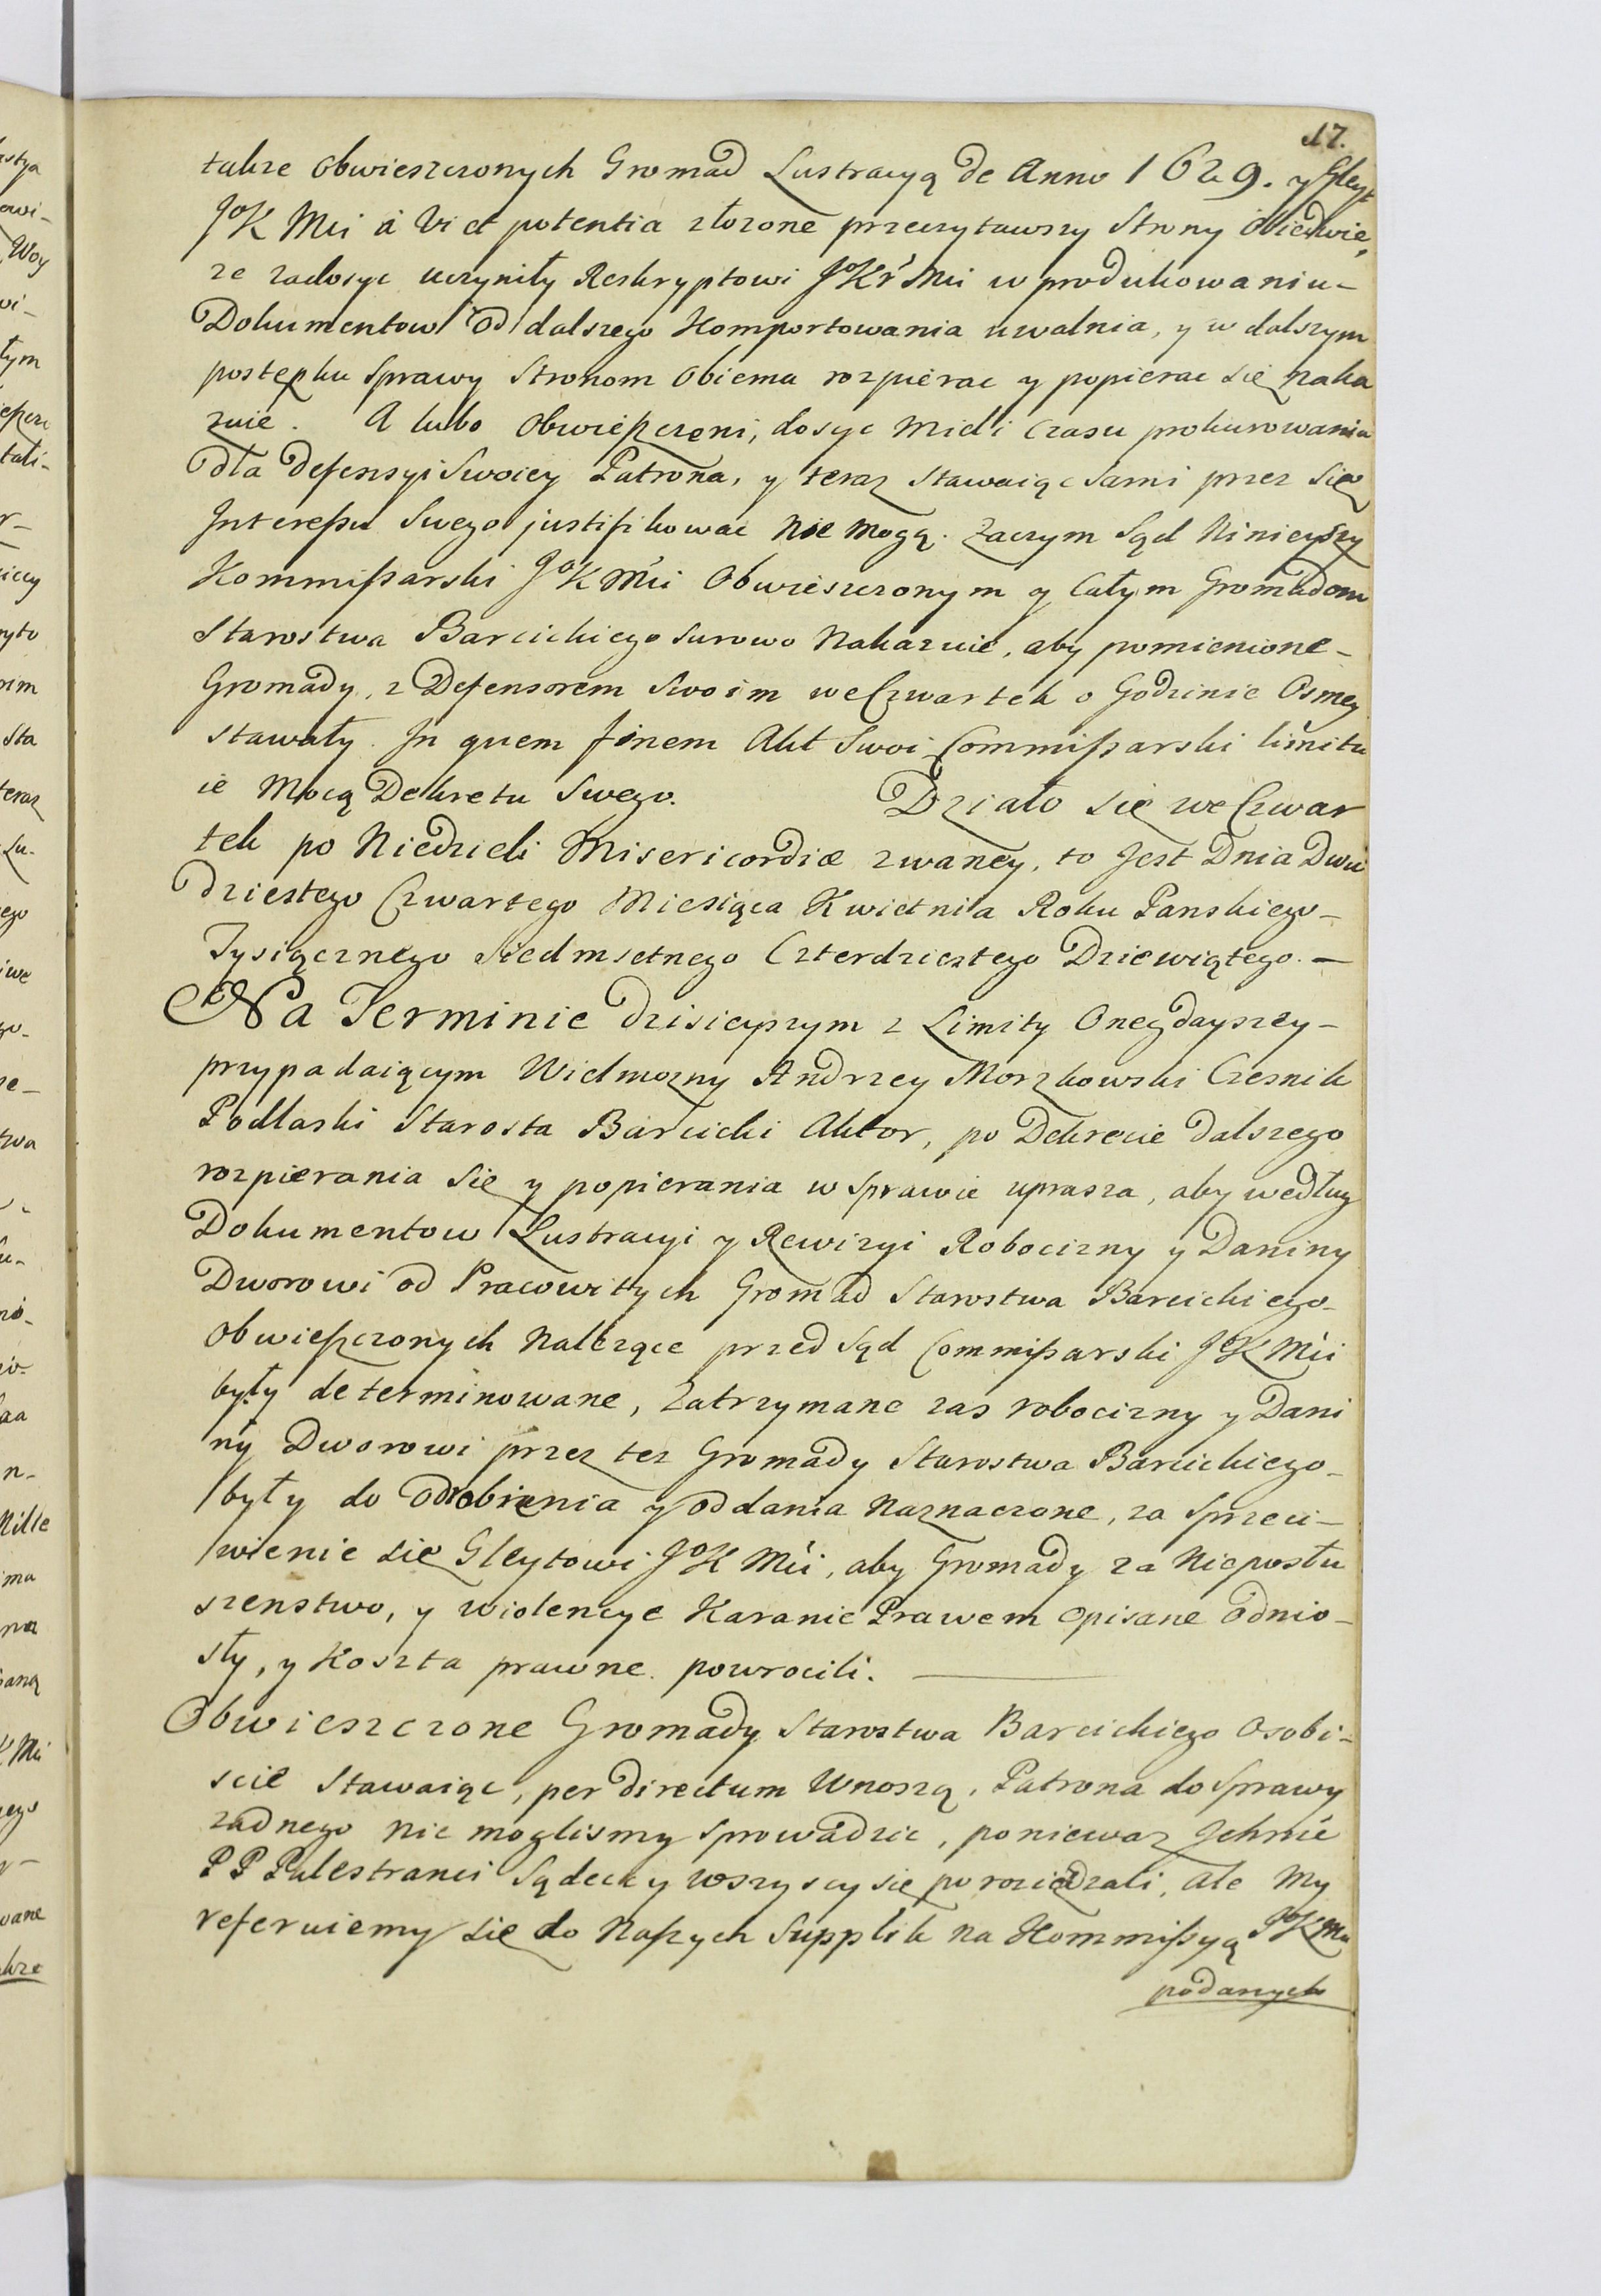 17.
takze obwieszczonych Gromad Lustracyą de Anno 1629. y Gleyt
JoK Mci á vi et potentia złozone przeczytawszy Strony obiedwie,
ze zadosyc uczyniły Reskryptowi JoKr Mci w produkowaniu-
Dokumentow od dalszego Komportowania uwalnia, y w dalszym
postępku Sprawy Stronom Obiema rozpierac y popierac się naka
zuie. A lubo Obwießczeni, dosyc mieli czasu prokurowania
dla Defensyi Swoiey Patrona, y teraz stawaiąc sami przez się
Interessu Swego justifikowac nie mogą. Zaczym Sąd Ninieyszy
Kommißarski JoK Mci Obwieszczonym y Całym Gromadom
Starostwa Barcickiego surowo Nakazuie, aby pomienione-
Gromady, z Defensorem Swoim we Czwartek o Godzinie Osmey
stawały. In quem finem Akt Swoi Commißarski limitu
ie Mocą Dekretu Swego. Działo się we Czwar
tek po Niedzieli Misericordiæ zwaney, to Jest Dnia Dwu
dziestego Czwartego Miesiąca Kwietnia Roku Panskiego-
Tysiącznego Siedmsetnego Czterdziestego Dziewiątego.-
Na Terminie dzisieyszym z Limity Onegdayszey-
przypadaiącym Wielmozny Andrzey Morzkowski Czesnik
Podlaski Starosta Barcicki Aktor, po Dekrecie dalszego
rozpierania Się y popierania w Sprawie uprasza, aby według
Dokumentow Lustracyi y Rewizyi Robocizny y Daniny
Dworowi od Pracowitych Gromad Starostwa Barcickiego-
Obwießczonych Nalezące przed Sąd Commißarski JoK Mci
były determinowane, Zatrzymane zas robocizny y Dani
ny Dworowi przez tez Gromady Starostwa Barcickiego-
były do odrobienia y oddania Naznaczone, za Sprzeci-
wienie się Gleytowi JoK Mci, aby Gromady za Nieposłu
szenstwo, y wiolencye Karanie Prawem opisane odnio-
sły, y Koszta prawne powrocili.
Obwieszczone Gromady Starostwa Barcickiego Osobi-
scie Stawaiąc, per directum Wnoszą, Patrona do Sprawy
zadnego nie moglismy Sprowadzic, poniewaz Ichmć
PP Palestranci Sądeccy wszyscy się porozieżdzali, ale My
referuiemy się do Naszych Supplik na Kommißyą JoKMci
podanych